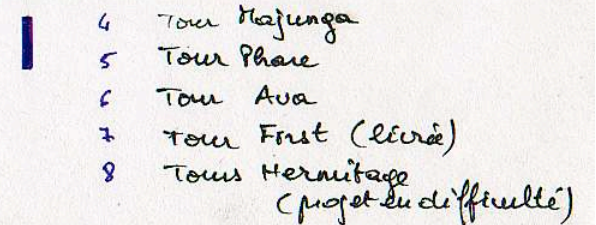 4 Tour Majunga
5 Tour Phare
6 Tour Ava
7 Tour First (livrée)
8 Tours Hermitage
(projet en difficulté)